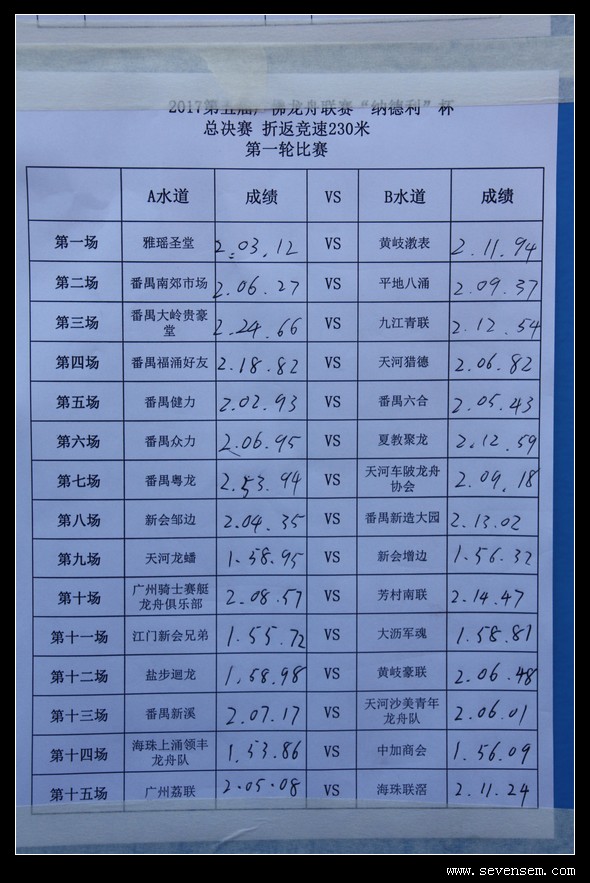 2017第五届广佛龙舟联赛“纳德利”杯
总决赛 折返竞速230米
第一轮比赛
A水道 成绩 VS B水道 成绩
第一场 雅瑶圣堂 2.03.12 VS 黄岐漖表 2.11.94
第二场 番禺南郊市场 2.06.27 VS 平地八涌 2.09.37
第三场 番禺大岭贵豪堂 2.24.66 VS 九江青联 2.12.54
第四场 番禺福涌好友 2.18.82 VS 天河猎德 2.06.82
第五场 番禺健力 2.02.93 VS 番禺六合 2.05.43
第六场 番禺众力 2.06.95 VS 夏教聚龙 2.12.59
第七场 番禺粤龙 2.53.94 VS 天河车陂龙舟协会 2.09.18
第八场 新会邹边 2.04.35 VS 番禺新造大园 2.13.02
第九场 天河龙蟠 1.58.95 VS 新会增边 1.56.32
第十场 广州骑士赛艇龙舟俱乐部 2.08.57 VS 芳村南联 2.14.47
第十一场 江门新会兄弟 1.55.72 VS 大沥军魂 1.58.81
第十二场 盐步迴龙 1.58.98 VS 黄岐豪联 2.06.48
第十三场 番禺新溪 2.07.17 VS 天河沙美青年龙舟队 2.06.01
第十四场 海珠上涌领丰龙舟队 1.53.86 VS 中加商会 1.56.09
第十五场 广州荔联 2.05.08 VS 海珠联滘 2.11.24
www.sevensem.com